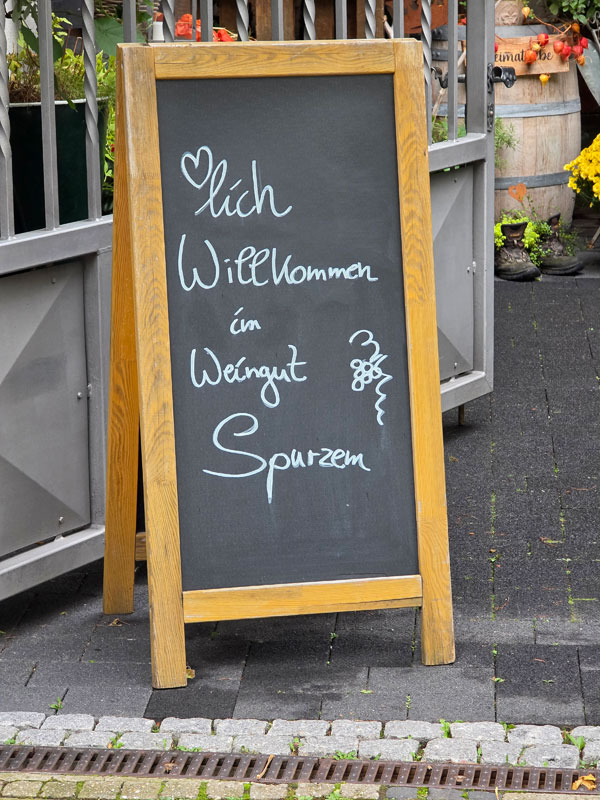 ♡lich
Willkommen
im
Weingut
Spurzem